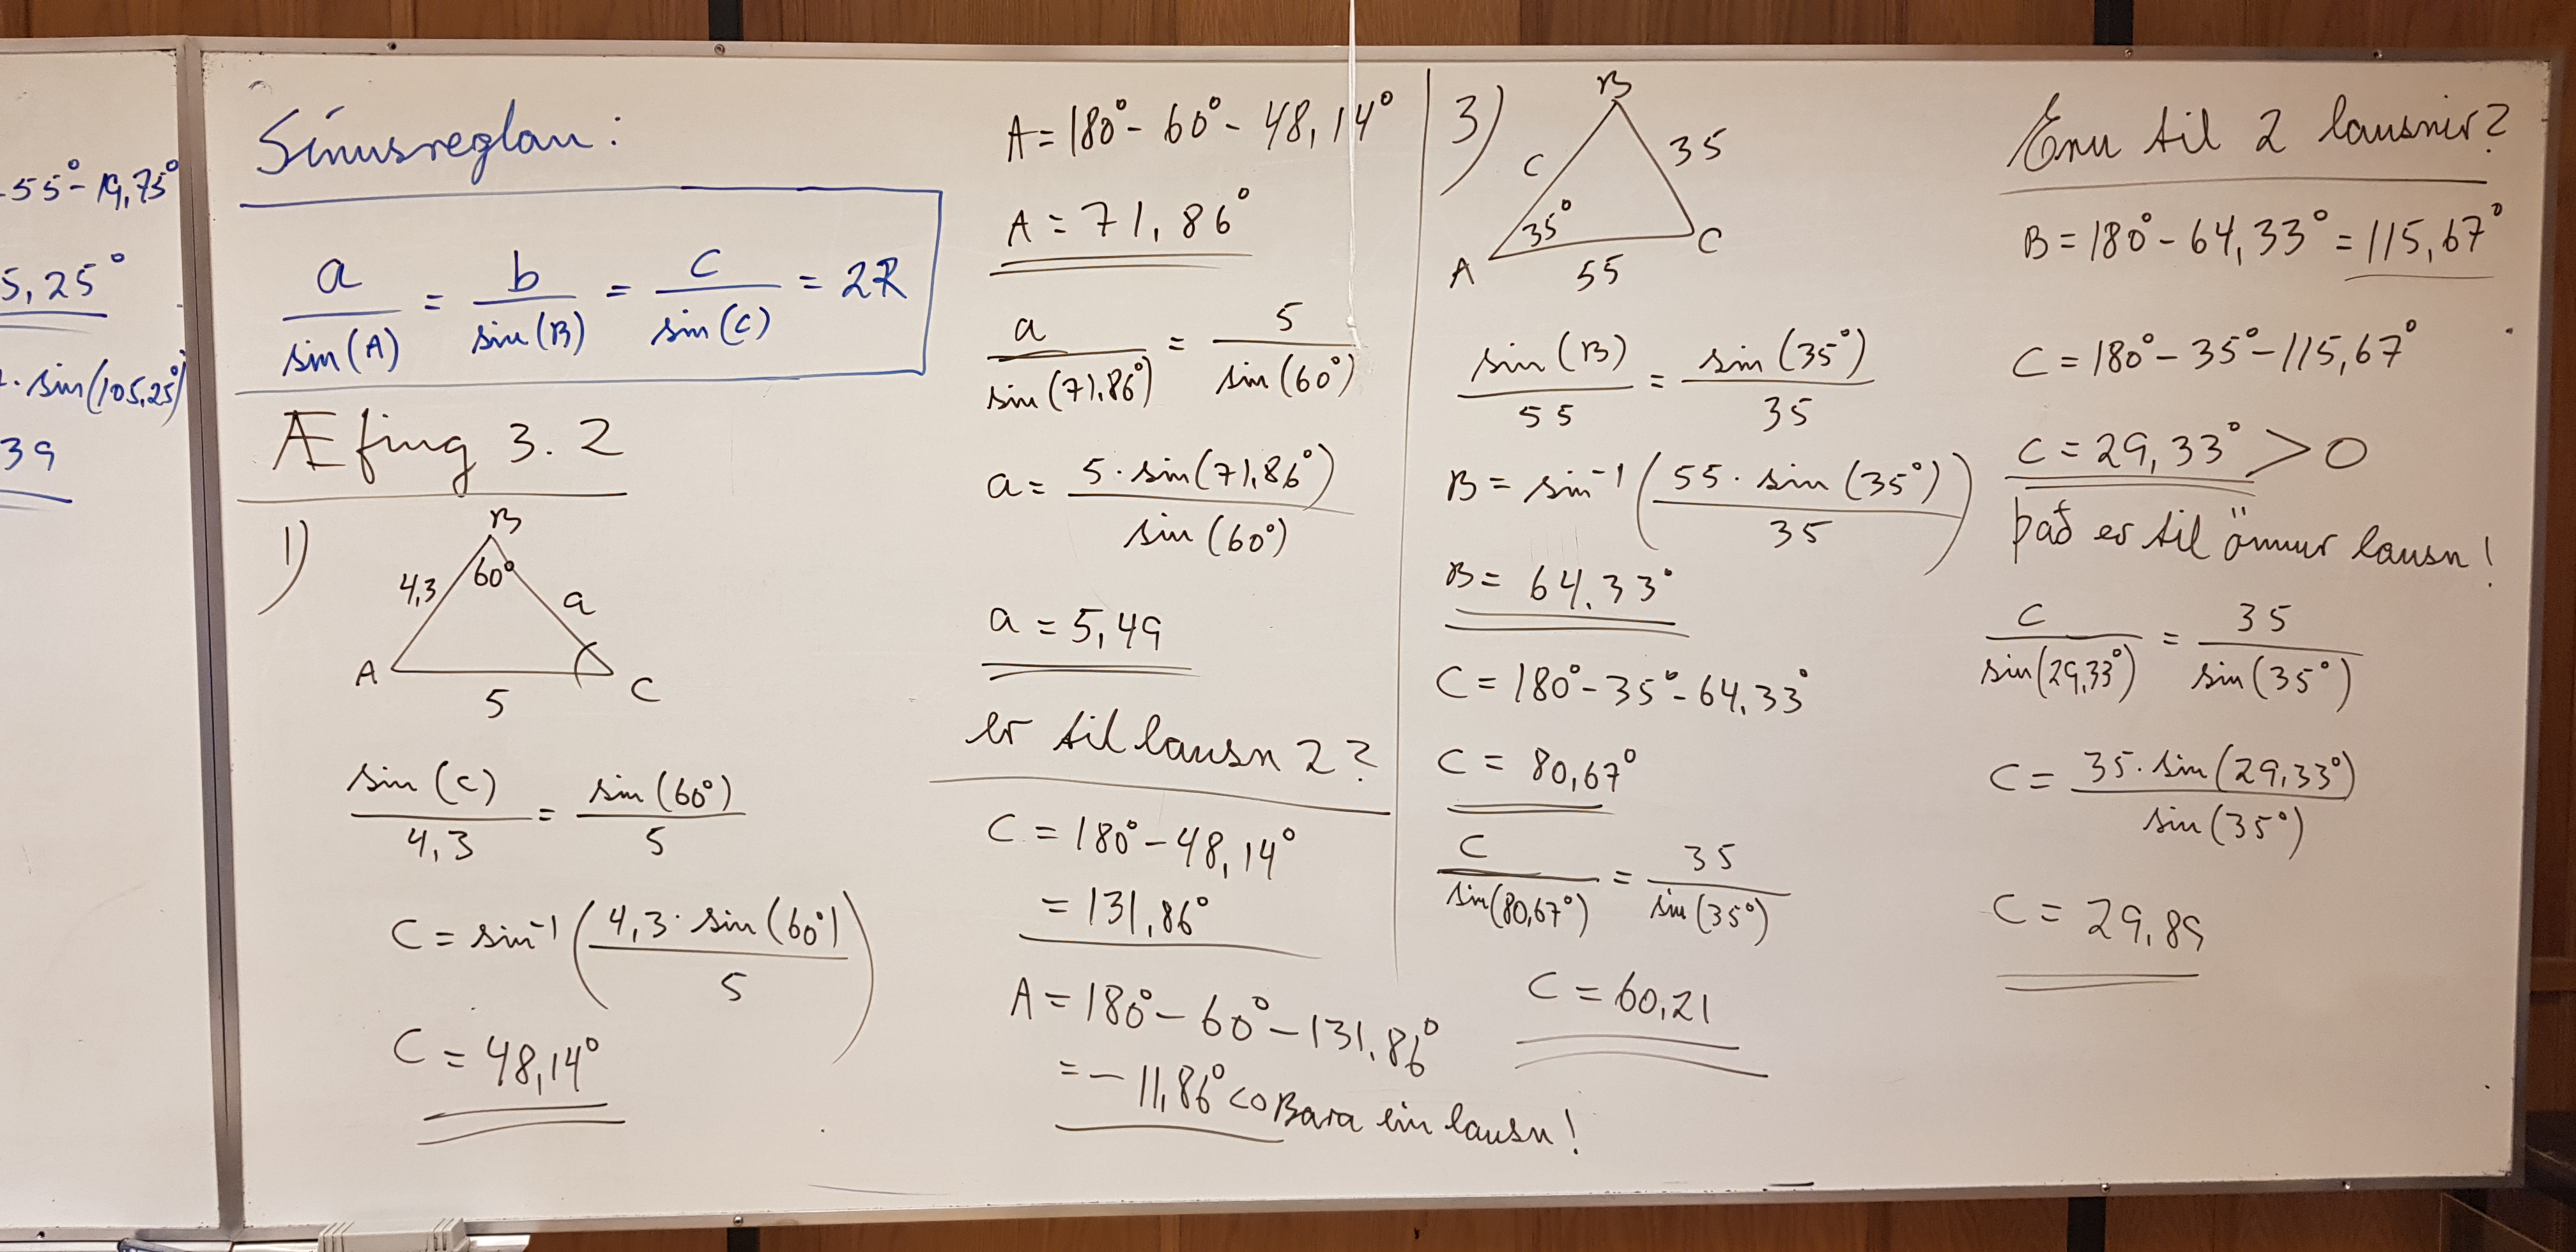 -55°-19,75°
5,25°
· sin(105,25°)
39
Sinusreglan:
a/sin(A) = b/sin(B) = c/sin(C) = 2R
Æfing 3.2
1)
B
4,3
60°
a
A
5
C
sin(C)/4,3 = sin(60°)/5
C = sin⁻¹(4,3·sin(60°)/5)
C = 48,14°
A = 180° - 60° - 48,14°
A = 71,86°
a/sin(71,86°) = 5/sin(60°)
a = 5·sin(71,86°)/sin(60°)
a = 5,49
er til lausn 2?
C = 180° - 48,14°
= 131,86°
A = 180° - 60° - 131,86°
= -11,86° <0 Bara ein lausn!
3)
B
c
35
35°
A
55
C
sin(B)/55 = sin(35°)/35
B = sin⁻¹(55·sin(35°)/35)
B = 64,33°
C = 180° - 35° - 64,33°
C = 80,67°
c/sin(80,67°) = 35/sin(35°)
C = 60,21
Eru til 2 lausnir?
B = 180° - 64,33° = 115,67°
C = 180° - 35° - 115,67°
C = 29,33° > 0
það er til önnur lausn!
c/sin(29,33°) = 35/sin(35°)
C = 35·sin(29,33°)/sin(35°)
C = 29,89